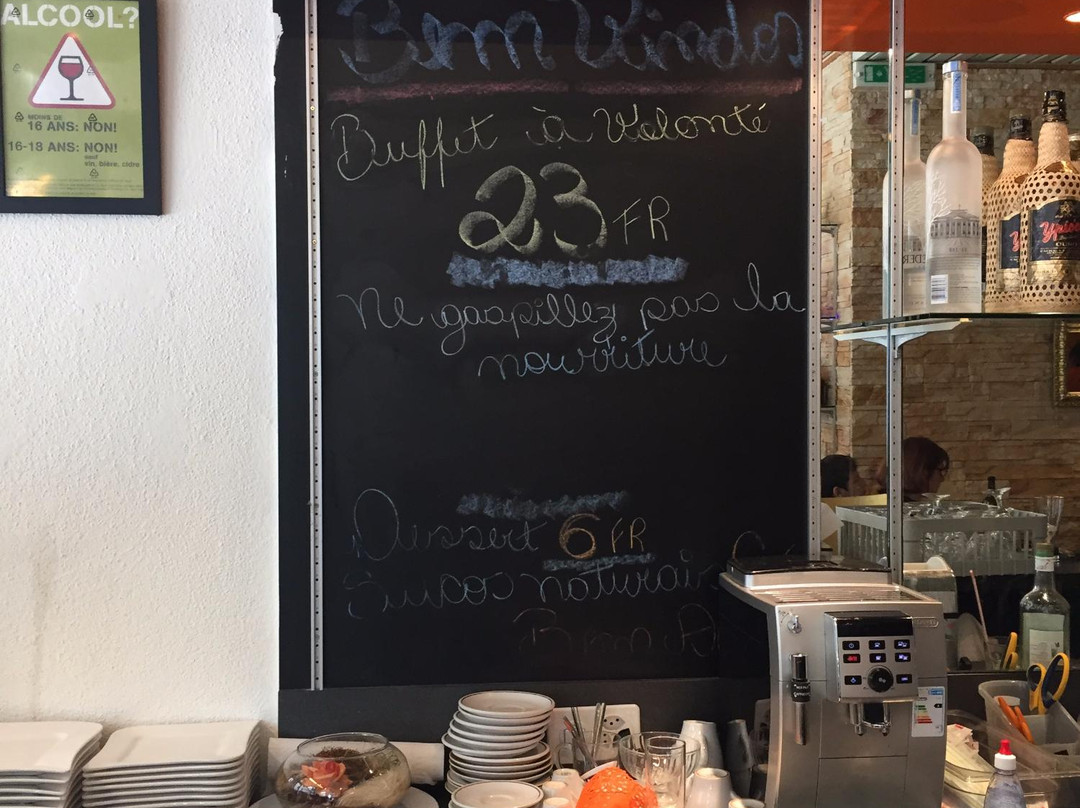 ALCOOL?
MOINS DE
16 ANS: NON!
16-18 ANS: NON!
sauf
vin, bière, cidre
Bem Vindos
Buffet à Volonté
23 FR
Ne gaspillez pas la
nourriture
Dessert 6 FR
Sucos naturais
Bem
Ypióca